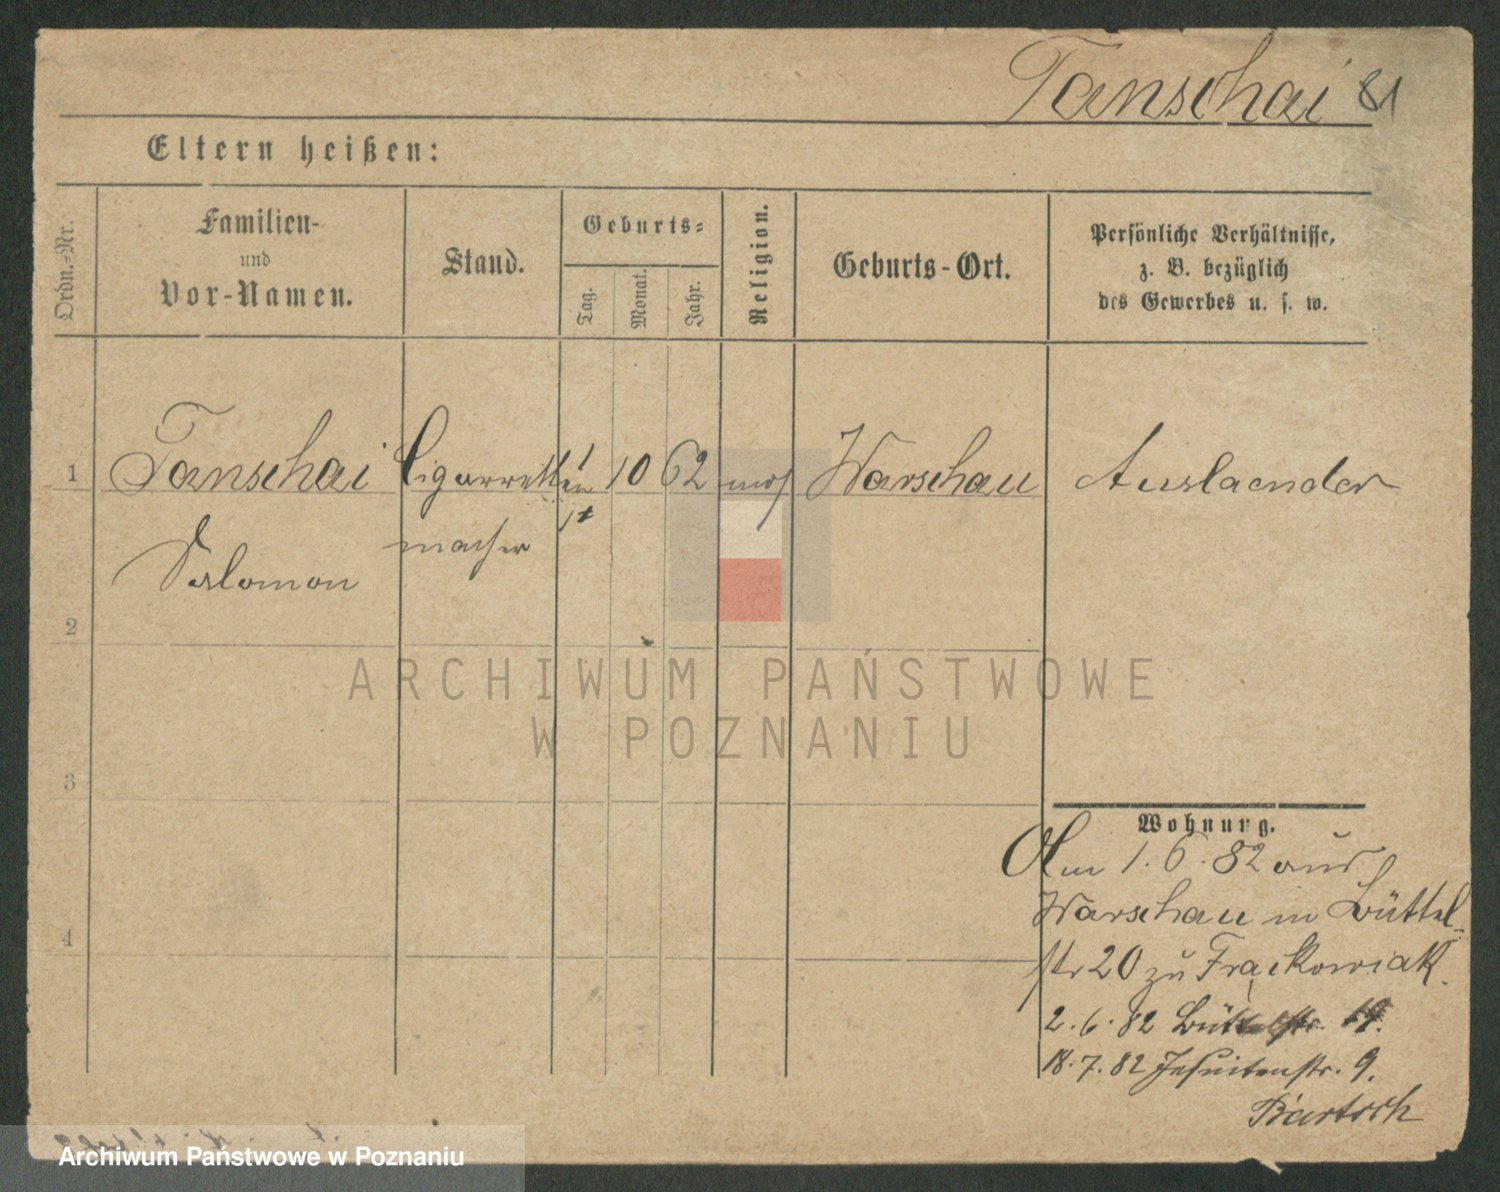 Tanschai 81
Eltern heißen:
Ordn.-Nr.
Familien-
und
Vor-Namen.
Stand.
Geburts-
Tag.
Monat.
Jahr.
Religion.
Geburts-Ort.
Persönliche Verhältnisse,
z. B. bezüglich
des Gewerbes u. s. w.
1 Tanschai Cigarretten 1 10 62 mos Warschau Auslaender
macher
Salomon
2
3
4
ARCHIWUM PAŃSTWOWE
W POZNANIU
Wohnung.
Am 1. 6. 82 aus
Warschau in Büttel-
str 20 zu Frąckowiak.
2. 6. 82 Büttelstr. 19.
18. 7. 82 Jesuitenstr. 9.
Bartsch
Archiwum Państwowe w Poznaniu